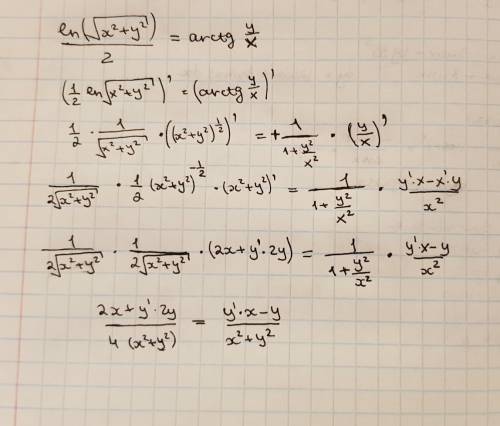 ln(√(x²+y²))/2 = arctg y/x
(1/2 ln√(x²+y²))' = (arctg y/x)'
1/2 · 1/√(x²+y²) · ((x²+y²)^(1/2))' = + 1/(1+y²/x²) · (y/x)'
1/(2√(x²+y²)) · 1/2 (x²+y²)^(-1/2) · (x²+y²)' = 1/(1+y²/x²) · (y'·x-x'·y)/x²
1/(2√(x²+y²)) · 1/(2√(x²+y²)) · (2x+y'·2y) = 1/(1+y²/x²) · (y'·x-y)/x²
(2x+y'·2y)/(4(x²+y²)) = (y'·x-y)/(x²+y²)